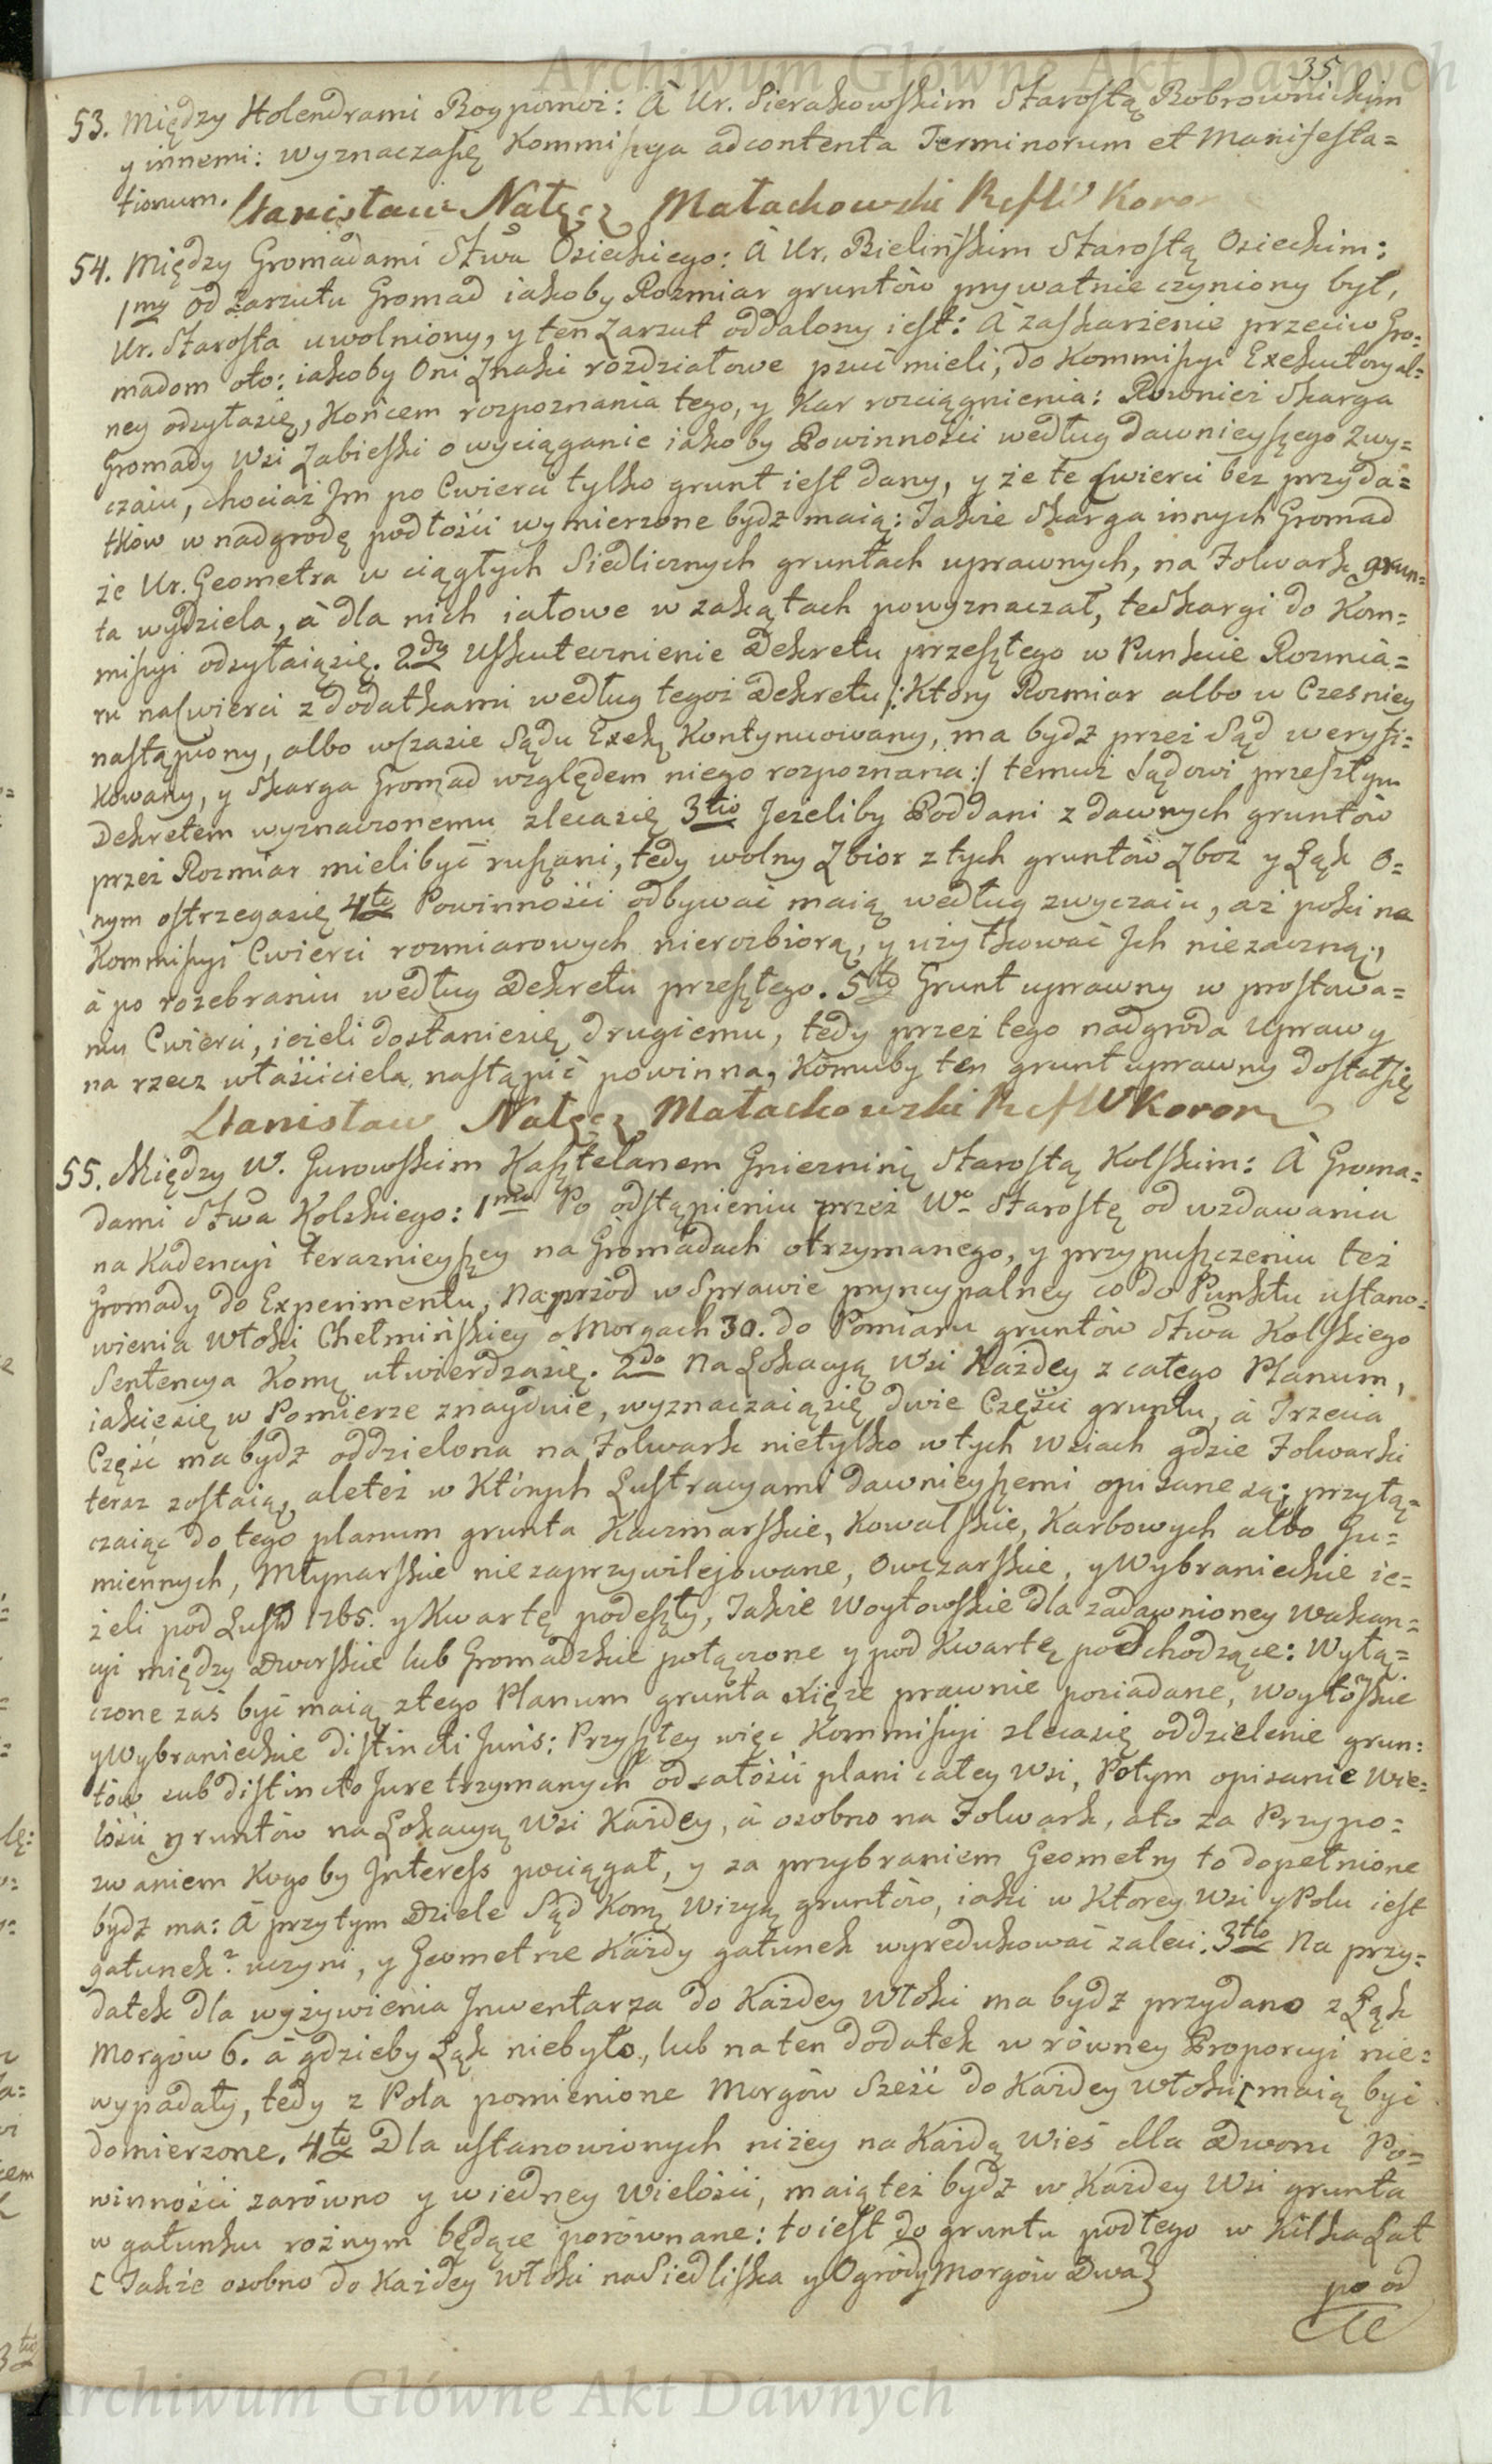 Archiwum Główne Akt Dawnych
35
53. Między Holendrami Bogpomoż: à Ur. Sierakowskim Starostą Bobrownickim
y innemi: wyznaczasię Kommissya ad contenta Terminorum et Manifesta=
tionum. Stanisław Nałęcz Małachowski RefWKoron
54. Między Gromadami Stwa Osieckiego: à Ur. Bielińskim Starostą Osieckim:
1mo Od Zarzutu Gromad iakoby Rozmiar gruntów prywatnie czyniony był,
Ur. Starosta uwolniony, y ten Zarzut oddalony iest: à zaskarżenie przeciw Gro=
madom oto: iakoby Oni Znaki rozdziałowe psuć mieli, do Kommissyi Exekutoryal=
ney odsyłasię, Końcem rozpoznania tego, y Kar rozciągnienia: Rownież Skarga
Gromady Wsi Zabieżki o wyciąganie iakoby Powinności według dawnieyszego Zwy=
czaiu, chociaż Jm po Cwierci tylko grunt iest dany, y że te Cwierci bez przyda=
tków w nadgrodę podłości wymierzone bydź maią: Także Skarga innych Gromad
że Ur. Geometra w ciągłych Siedlicznych gruntach uprawnych, na Folwark grun=
ta wydziela, à dla nich iałowe w zakątach powyznaczał, te Skargi do Kom=
missyi odsyłaiąsię. 2do Uskutecznienie Dekretu przeszłego w Punkcie Rozmia=
ru na Cwierci z dodatkami według tegoż Dekretu /: Ktory Rozmiar albo w Czesniey
nastąpiony, albo w Czasie Sądu Exek Kontynuowany, ma bydź przez Sąd weryfi=
kowany, y Skarga Gromad względem niego rozpoznana :/ temuż Sądowi przeszłym
Dekretem wyznaczonemu zlecasię 3tio Jeżeliby Poddani z dawnych gruntów
przez Rozmiar mieli być ruszani, tedy wolny Zbior z tych gruntów Zboż y Łąk O=
nym ostrzegasię 4to Powinności odbywać maią według zwyczaiu, aż poki na
Kommissyi Cwierci rozmiarowych nierozbiorą, y użytkować Jch niezaczną;
à po rozebraniu według Dekretu przeszłego. 5to Grunt uprawny w prostowa=
niu Cwierci, ieżeli dostaniesię drugiemu, tedy przez tego nadgroda Uprawy
na rzecz właściciela nastąpić powinna, Komuby ten grunt uprawny dostałsię
Stanisław Nałęcz Małachowski RefWKoron
55. Między W. Gurowskim Kasztelanem Gnieznin Starostą Kolskim: à Groma=
dami Stwa Kolskiego: 1mo Po odstąpieniu przez Wo Starostę od wzdawania
na Kadencyi teraznieyszey na Gromadach otrzymanego, y przypuszczeniu też
Gromady do Experimentu, Naprzód w Sprawie pryncypalney co do Punktu ustano=
wienia Włoki Chełmińskiey o Morgach 30. do Pomiaru gruntów Stwa Kolskiego
Sentencya Kom utwierdzasię. 2do Na Lokacyą Wsi Każdey z całego Planum,
iakiesię w Pomierze znayduie, wyznaczaiąsię dwie Części gruntu, à Trzecia
Część ma bydź oddzielona na Folwark nietylko w tych Wsiach gdzie Folwarki
teraz zostaią, aleteż w Których Lustracyami dawnieyszemi opisane są; przyłą=
czaiąc do tego planum grunta Kaczmarskie, Kowalskie, Karbowych albo Gu=
miennych, Młynarskie niezaprzywilejowane, Owczarskie, y Wybranieckie ie=
żeli pod Lustr 1765. y Kwartę podeszły, Także Woytowskie dla zadawnioney Wakan=
cyi między Dworskie lub Gromadzkie połączone y pod Kwartę podchodzące: Wyłą=
czone zaś być maią z tego Planum grunta Xięże prawnie posiadane, Woytoskie
y Wybranieckie distincti Juris: Przyszłey więc Kommissyi zlecasię oddzielenie grun=
tów sub distincto Jure trzymanych od całości plani całey Wsi, Potym opisanie Wie=
lości gruntów na Lokacyą Wsi Każdey, à osobno na Folwark, ato za Przypo=
zwaniem Kogoby Interess pociągał, y za przybraniem Geometry to dopełnione
bydź ma: à przytym Dziele Sąd Kom Wizyą gruntów, iaki w Ktorey Wsi y Polu iest
gatunek? uczyni, y Geometrze Każdy gatunek wyredukować zaleci. 3tio Na przy=
datek dla wyżywienia Jnwentarza do Każdey Włoki ma bydź przydano z Łąk
Morgow 6. à gdzieby Łąk niebyło, lub na ten dodatek w równey Proporcyi nie=
wypadały, tedy z Pola pomienione Morgów Sześć do Każdey Włoki [ maią być
domierzone. 4to Dla ustanowionych niżey na Każdą Wieś dla Dworu Po=
winności zarówno y w iedney Wielości, maią też bydź w Każdey Wsi grunta
w gatunku rożnym będące porównane: to iest do gruntu podłego w Kilka Lat
[ Także osobno do Każdey Włoki na Siedliska y Ogrody Morgów Dwa ]
po od
Archiwum Główne Akt Dawnych